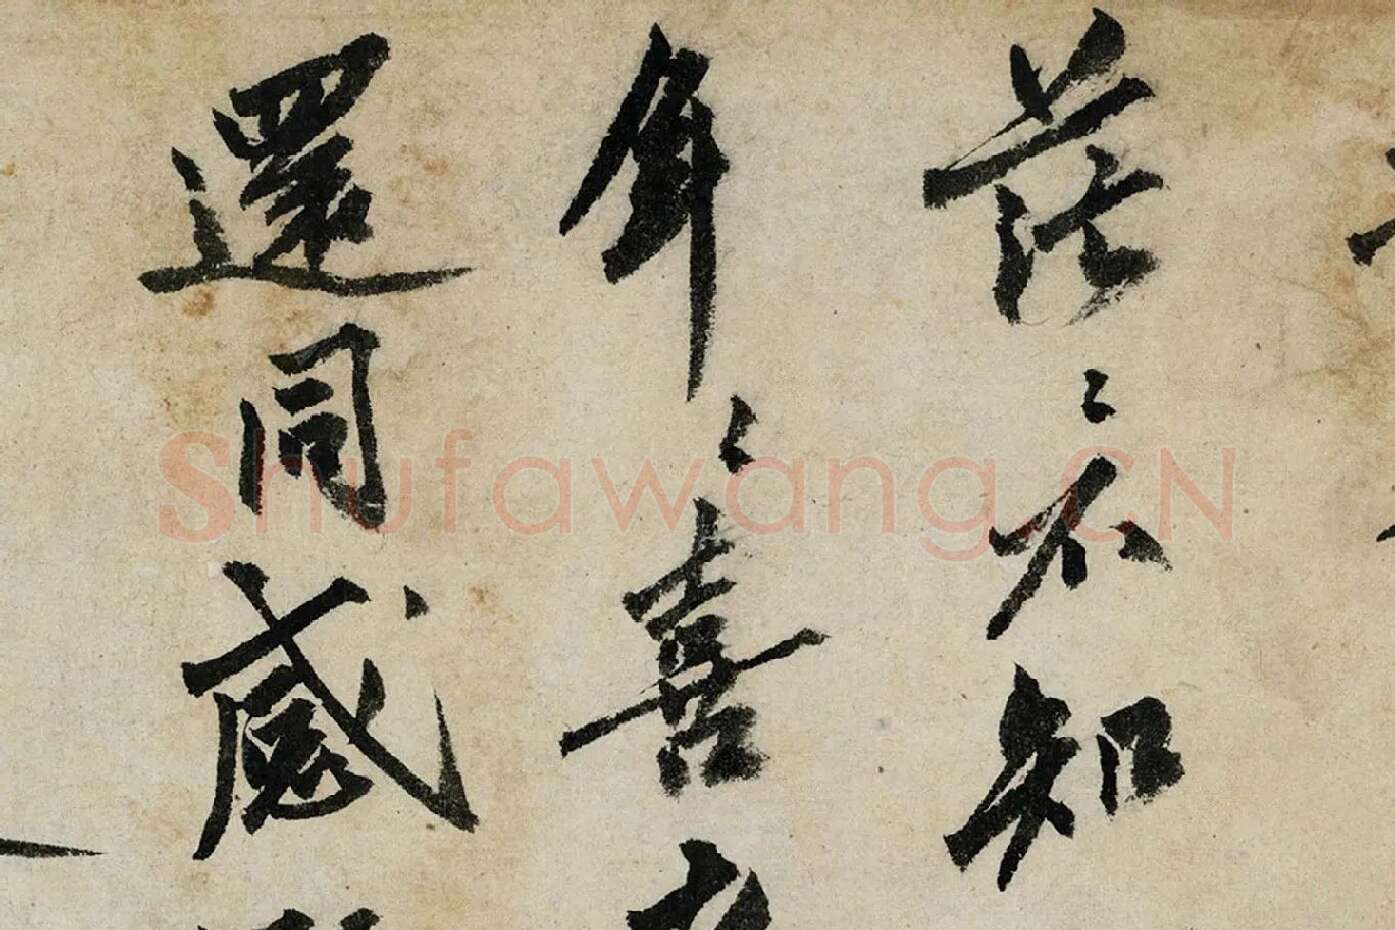 茫〻不知
年〻喜
還同感
Shufawang.CN